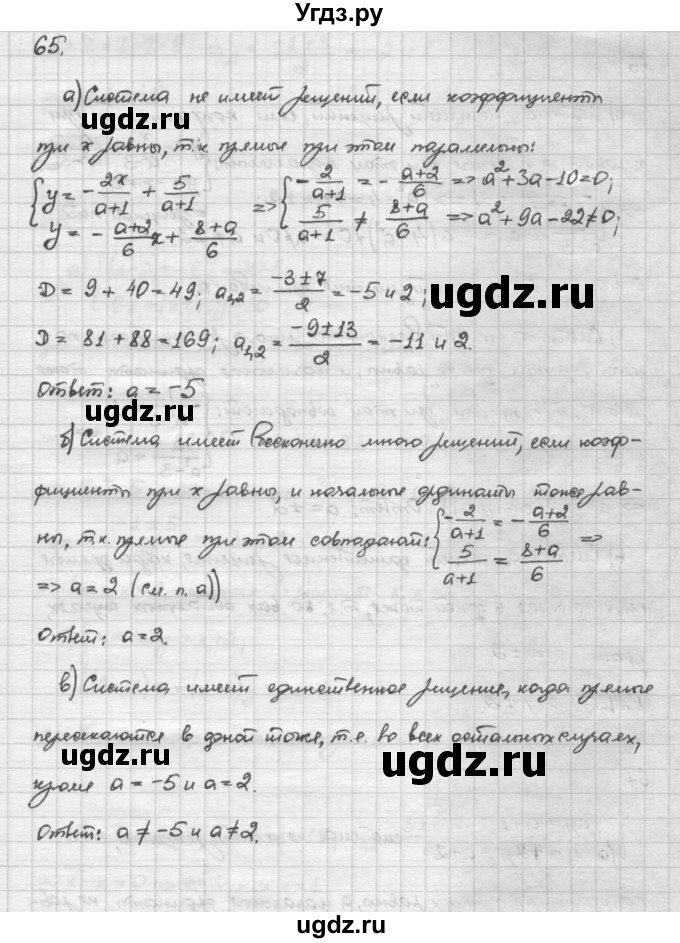 Угдз.ру
65.
а) Система не имеет решений, если коэффициенты
при x равны, т.к. прямые при этом параллельны:
{ y = -2x/(a+1) + 5/(a+1) ; y = -(a+2)/6 x + (8+a)/6 => { -2/(a+1) = -(a+2)/6 => a² + 3a - 10 = 0; 5/(a+1) ≠ (8+a)/6 => a² + 9a - 22 ≠ 0;
D = 9 + 40 = 49; a₁,₂ = (-3 ± 7)/2 = -5 и 2;
D = 81 + 88 = 169; a₁,₂ = (-9 ± 13)/2 = -11 и 2.
Ответ: a = -5
б) Система имеет бесконечно много решений, если коэф-
фициенты при x равны, и начальные ординаты тоже рав-
ны, т.к. прямые при этом совпадают: { -2/(a+1) = -(a+2)/6 ; 5/(a+1) = (8+a)/6 =>
=> a = 2 (см. п. а))
Ответ: a = 2.
в) Система имеет единственное решение, когда прямые
пересекаются в одной точке, т.е. во всех остальных случаях,
кроме a = -5 и a = 2.
Ответ: a ≠ -5 и a ≠ 2.
ugdz.ru
ugdz.ru
ugdz.ru
ugdz.ru
ugdz.ru
ugdz.ru
ugdz.ru
ugdz.ru